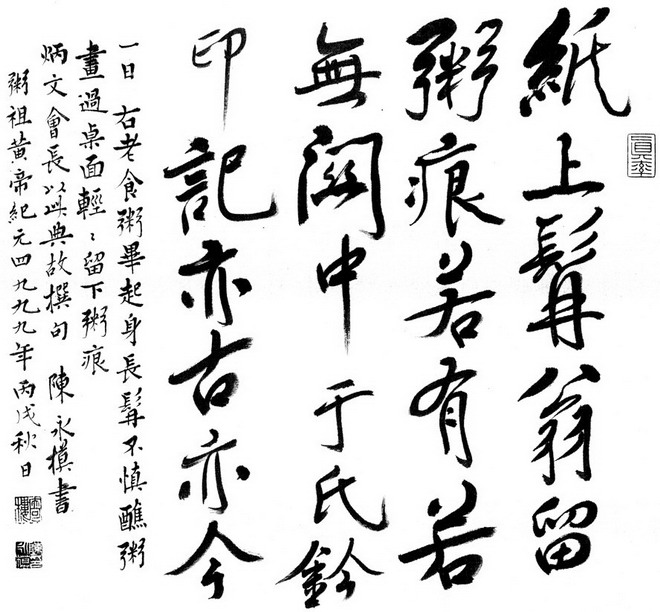 紙上髯翁留
粥痕若有若
無關中于氏鈐
印記亦古亦今
一日 右老食粥畢起身長髯不慎醮粥
畫過桌面輕〻留下粥痕
炳文會長以此典故撰句 陳永模書
粥祖黃帝紀元四九九九年丙戌秋日